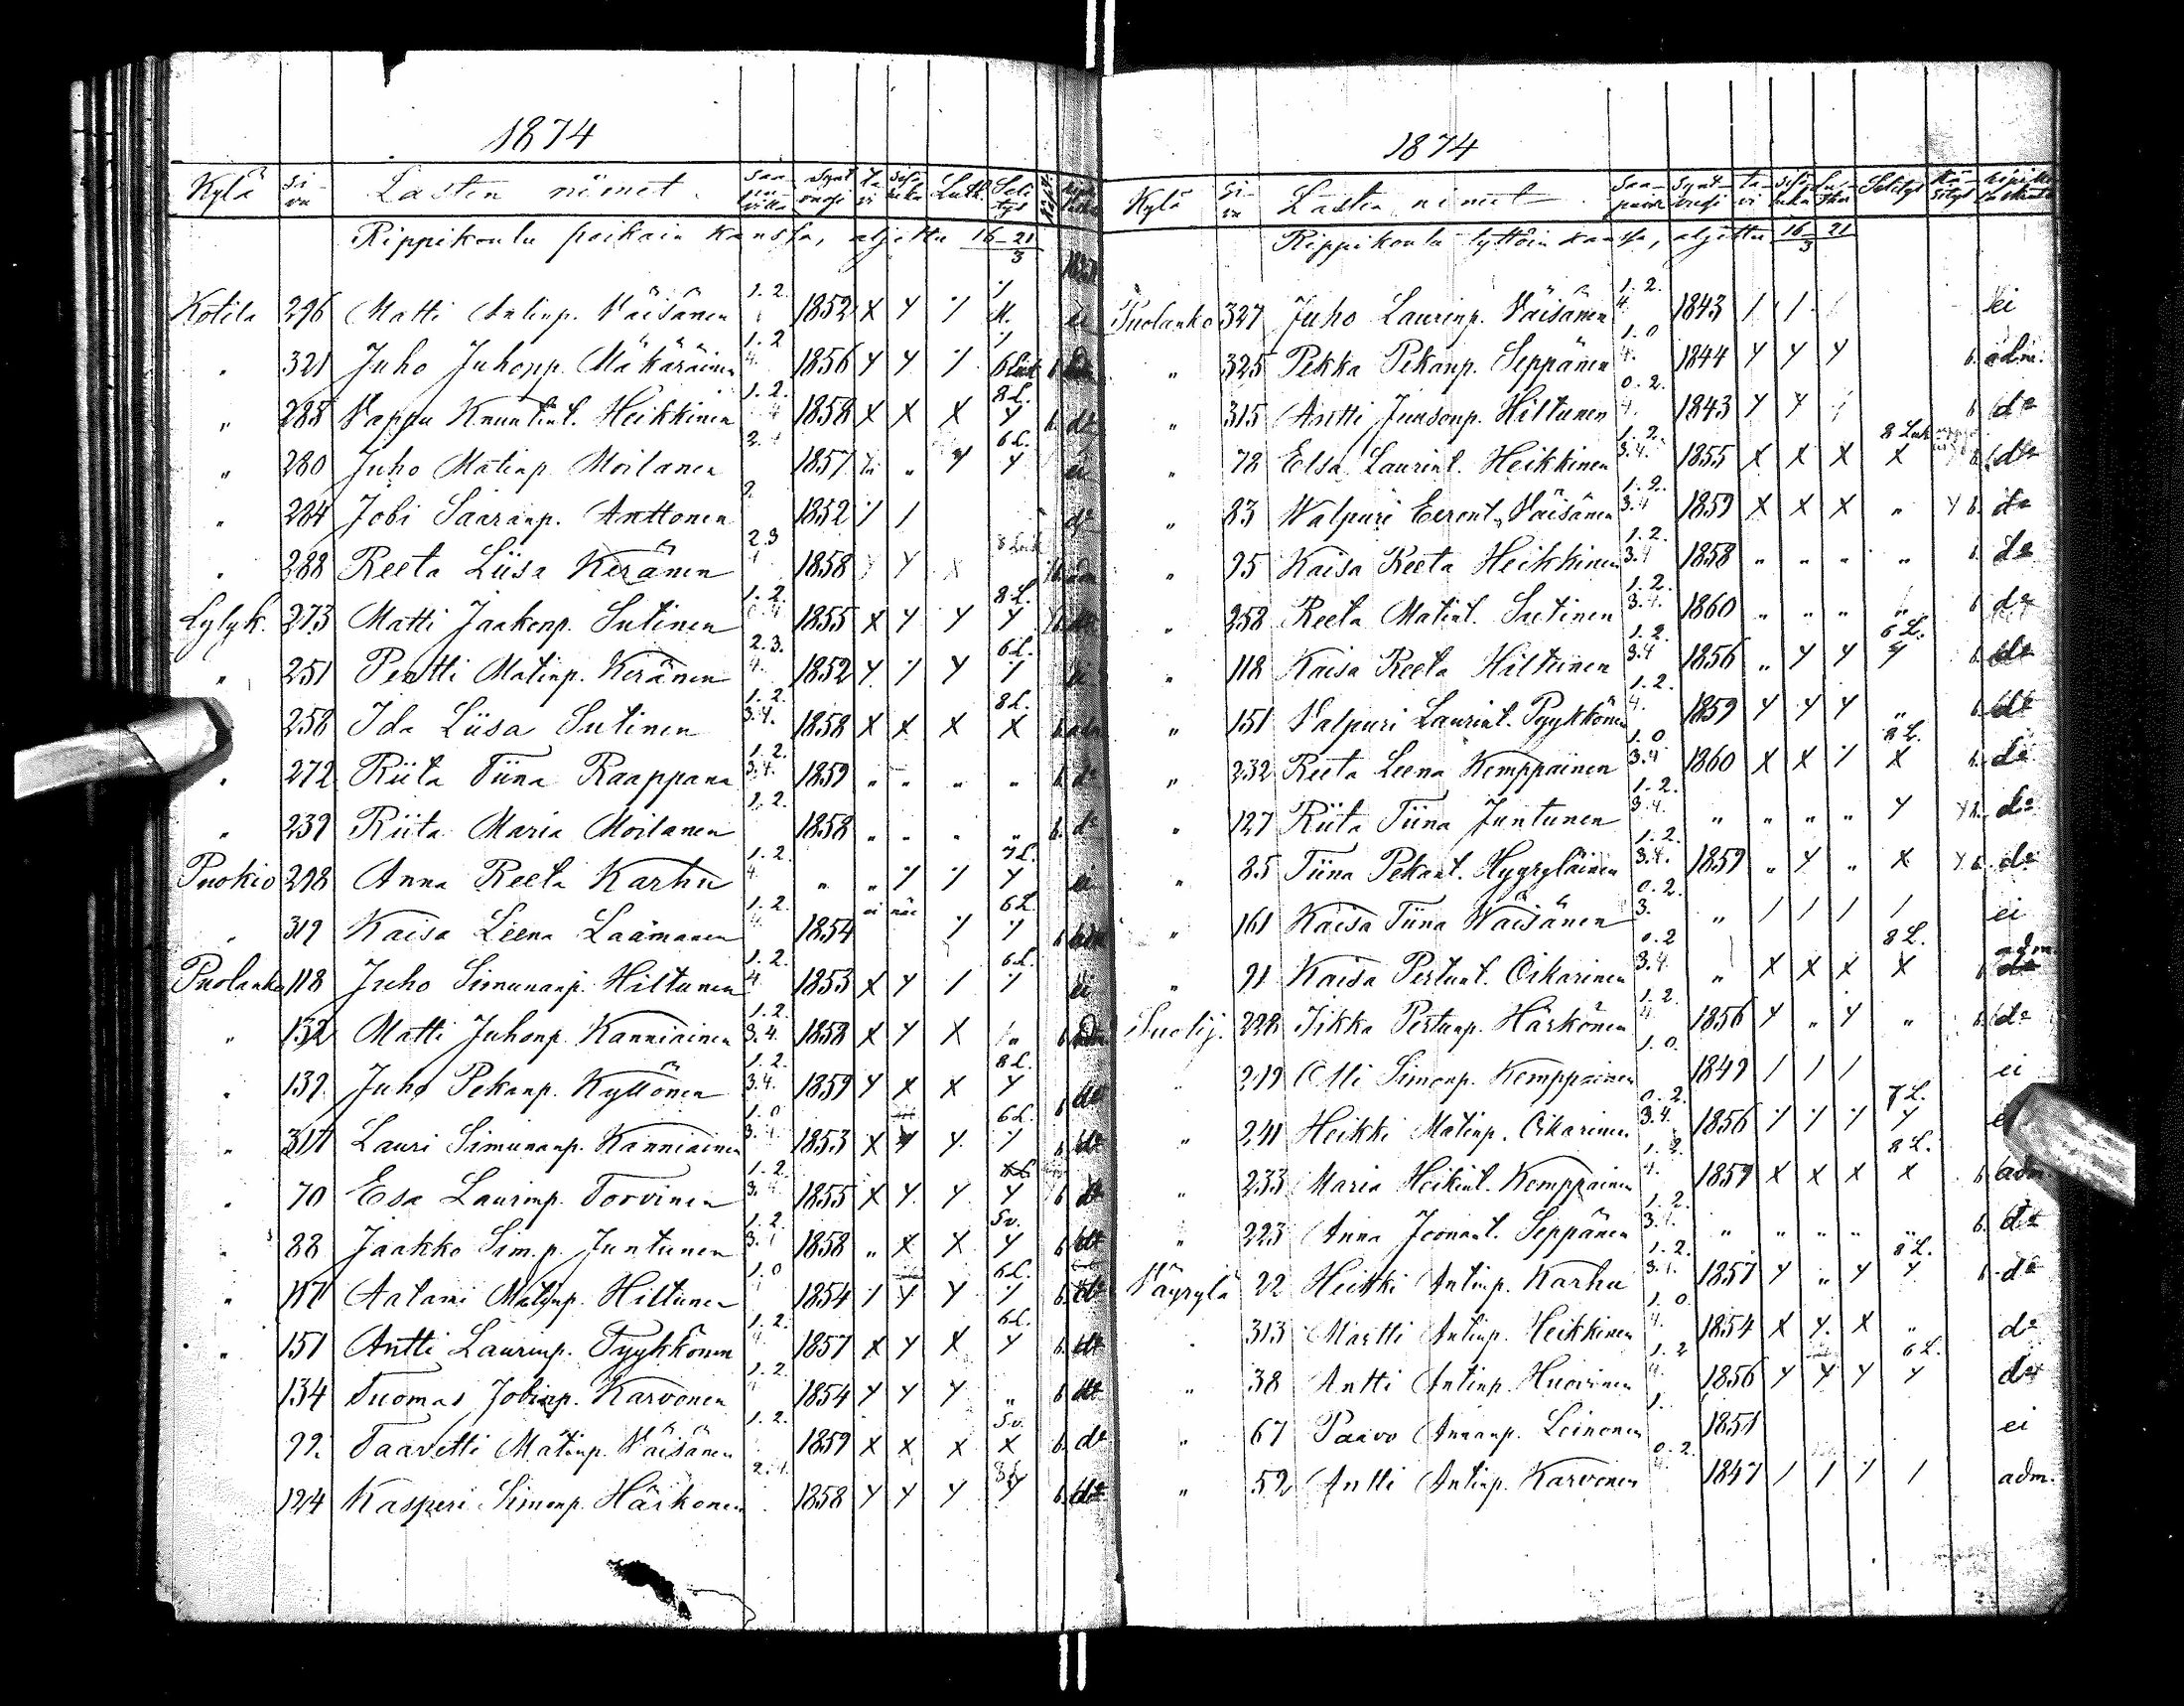 1874
Kylä Si-vu Lasten nimet. Saa-puvilla Synt vuosi ta-vi sisä-luku Luth. Seli-tys
Rippikoulu poikain kanssa, aljettu 16-21/3
Kotila 296 Matti Antinp. Väisänen 1. 2. 1852 X Y
" 321 Juho Juhonp. Mäkäräinen 1. 2. 4. 1856 Y Y
" 285 Vappu Knuutint. Heikkinen 1. 2. 4 1858 X X X Y 8 L. 6 do
" 280 Juho Matinp. Moilanen 1857 " Y Y 6 L. ei
" 284 Jobi Saaranp. Anttonen 2. 1852 do
" 288 Reeta Liisa Keränen 2. 3 1858 Y
Lylyk. 273 Matti Jaakonp. Sutinen 1. 2. 1855 X Y Y Y 8 L.
" 251 Pentti Matinp. Keränen 2. 3. 4. 1852 Y Y 6 L. ei
" 258 Ida Liisa Sutinen 1. 2. 3. 4. 1858 X X X X 8 L. 6 adm
" 272 Riita Tiina Raappana 1. 2. 3. 4. 1859 " " " " 6 do
" 239 Riita Maria Moilanen 1. 2. 1858 " " " " 6. do
Puokio 298 Anna Reeta Karhu 1. 2. 4. " " Y 7 L. ei
" 319 Kaisa Leena Laämanen 1. 2. 4. 1854 ei näe 6 L. 6 adm
Puolanko 118 Juho Simunanp. Hiltunen 1. 2. 4. 1853 X Y 6 L. ei
" 132 Matti Juhonp. Kanniainen 1. 2. 3. 4. 1858 X Y X " 6 adm
" 139 Juho Pekanp. Kyllönen 1. 2. 3. 4. 1859 Y X X Y 8 L. 6 do
" 317 Lauri Simunanp. Kanniainen 1. 0 3. 4. 1853 X Y Y 6 L. 6 do
" 70 Esa Laurinp. Torvinen 1. 2. 3. 4. 1855 X Y Y Y 6 do
" 88 Jaakko Sim. p. Juntunen 1. 2. 3. 4 1858 " X X Y 5 v. 6 do
" 117 Aatami Matinp. Hiltunen 1. 0 1854 Y Y 6 L. 6. do
" 151 Antti Laurinp. Pyykkönen 1. 2. 4. 1857 X Y X Y 6 L. 6. do
134 Tuomas Jobinp. Karvonen 1. 2. 4 1854 Y Y Y " 6 do
92. Taavetti Matinp. Väisänen 1. 2. 1859 X X X X 5 v. 6. do
124 Kasperi Simonp. Härkönen 2. 4. 1858 Y Y Y Y 6. do
1874
Kylä Si-vu Lasten nimet Saa-puvilla Synt-vuosi ta-vi sisä-luku Selitys Kä-sitys
Rippikoulu tyttöin kanssa, aljettu 16-21/3
Puolanko 327 Juho Laurinp. Väisänen 1. 2. 4. 1843 / / ei
" 325 Pekka Pekanp. Seppänen 1. 0 4. 1844 Y Y Y 6. adm.
" 315 Antti Junsonp. Hiltunen 0. 2. 4. 1843 Y Y 6 do
" 72 Elsa Laurint. Heikkinen 1. 2. 3. 4. 1855 X X X X 6. do
" 83 Walpuri Eeront. Väisänen 1. 2. 3. 4 1859 X X X " Y 6. do
" 95 Kaisa Reeta Heikkinen 1. 2. 3. 4 1858 " " " " 6. do
" 258 Reeta Matint. Sutinen 1. 2. 3. 4. 1860 " " " " 6 do
" 118 Kaisa Reeta Hiltunen 1. 2. 3. 4 1856 " Y Y Y 6 L. 6. do
" 151 Valpuri Laurint. Pyykkönen 1. 2. 4. 1859 Y Y Y " 6 do
" 232 Reeta Leena Kemppainen 1. 0 3. 4 1860 X X X 8 L. 6. do
" 127 Riita Tiina Juntunen 1. 2. 3. 4. " " " " Y Y 6. do
" 85 Tiina Pekant. Hyyryläinen 1. 2. 3. 4. 1859 " Y " X Y 6. do
" 161 Kaisa Tiina Väisänen 0. 2. 3. " / / / / ei
" 91 Kaisa Pertunt. Oikarinen 0. 2 3. 4. " X X X X 8 L. adm
Suolij. 228 Iikka Pertunp. Härkönen 1. 2. 4. 1856 Y " Y " 6. do
" 219 Olli Simonp. Kemppainen 1. 0. 1849 / / / ei
" 241 Heikki Matinp. Oikarinen 0. 2. 3. 4. 1856 Y 7 L.
" 233 Maria Heikint. Kemppainen 1. 2. 4. 1859 X X X X 8 L. 6 adm.
" 223 Anna Joonant. Seppänen 1. 2. 3. 4. " " " " " 6. do
Väyrylä 22 Heikki Antinp. Karhu 1. 2. 3. 4. 1857 Y " Y Y 8 L. 6. do
" 313 Martti Antinp. Heikkinen 1. 0. 4. 1854 X Y. X " do
" 38 Antti Antinp. Huovinen 1. 2 4. 1856 Y Y Y Y 6 L. do
" 67 Paavo Annanp. Leinonen 1. ei
" 52 Antti Antinp. Karvonen 0. 2. 4. 1847 / / / adm.